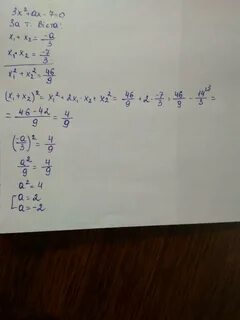 3x²+ax-7=0
За т. Вієта:
x₁+x₂ = -a/3
x₁·x₂ = -7/3
x₁²+x₂² = 46/9
(x₁+x₂)² = x₁²+2x₁·x₂+x₂² = 46/9 + 2·-7/3 = 46/9 - 14/3 \3 =
= 46-42/9 = 4/9
(-a/3)² = 4/9
a²/9 = 4/9
a² = 4
[a = 2
a = -2